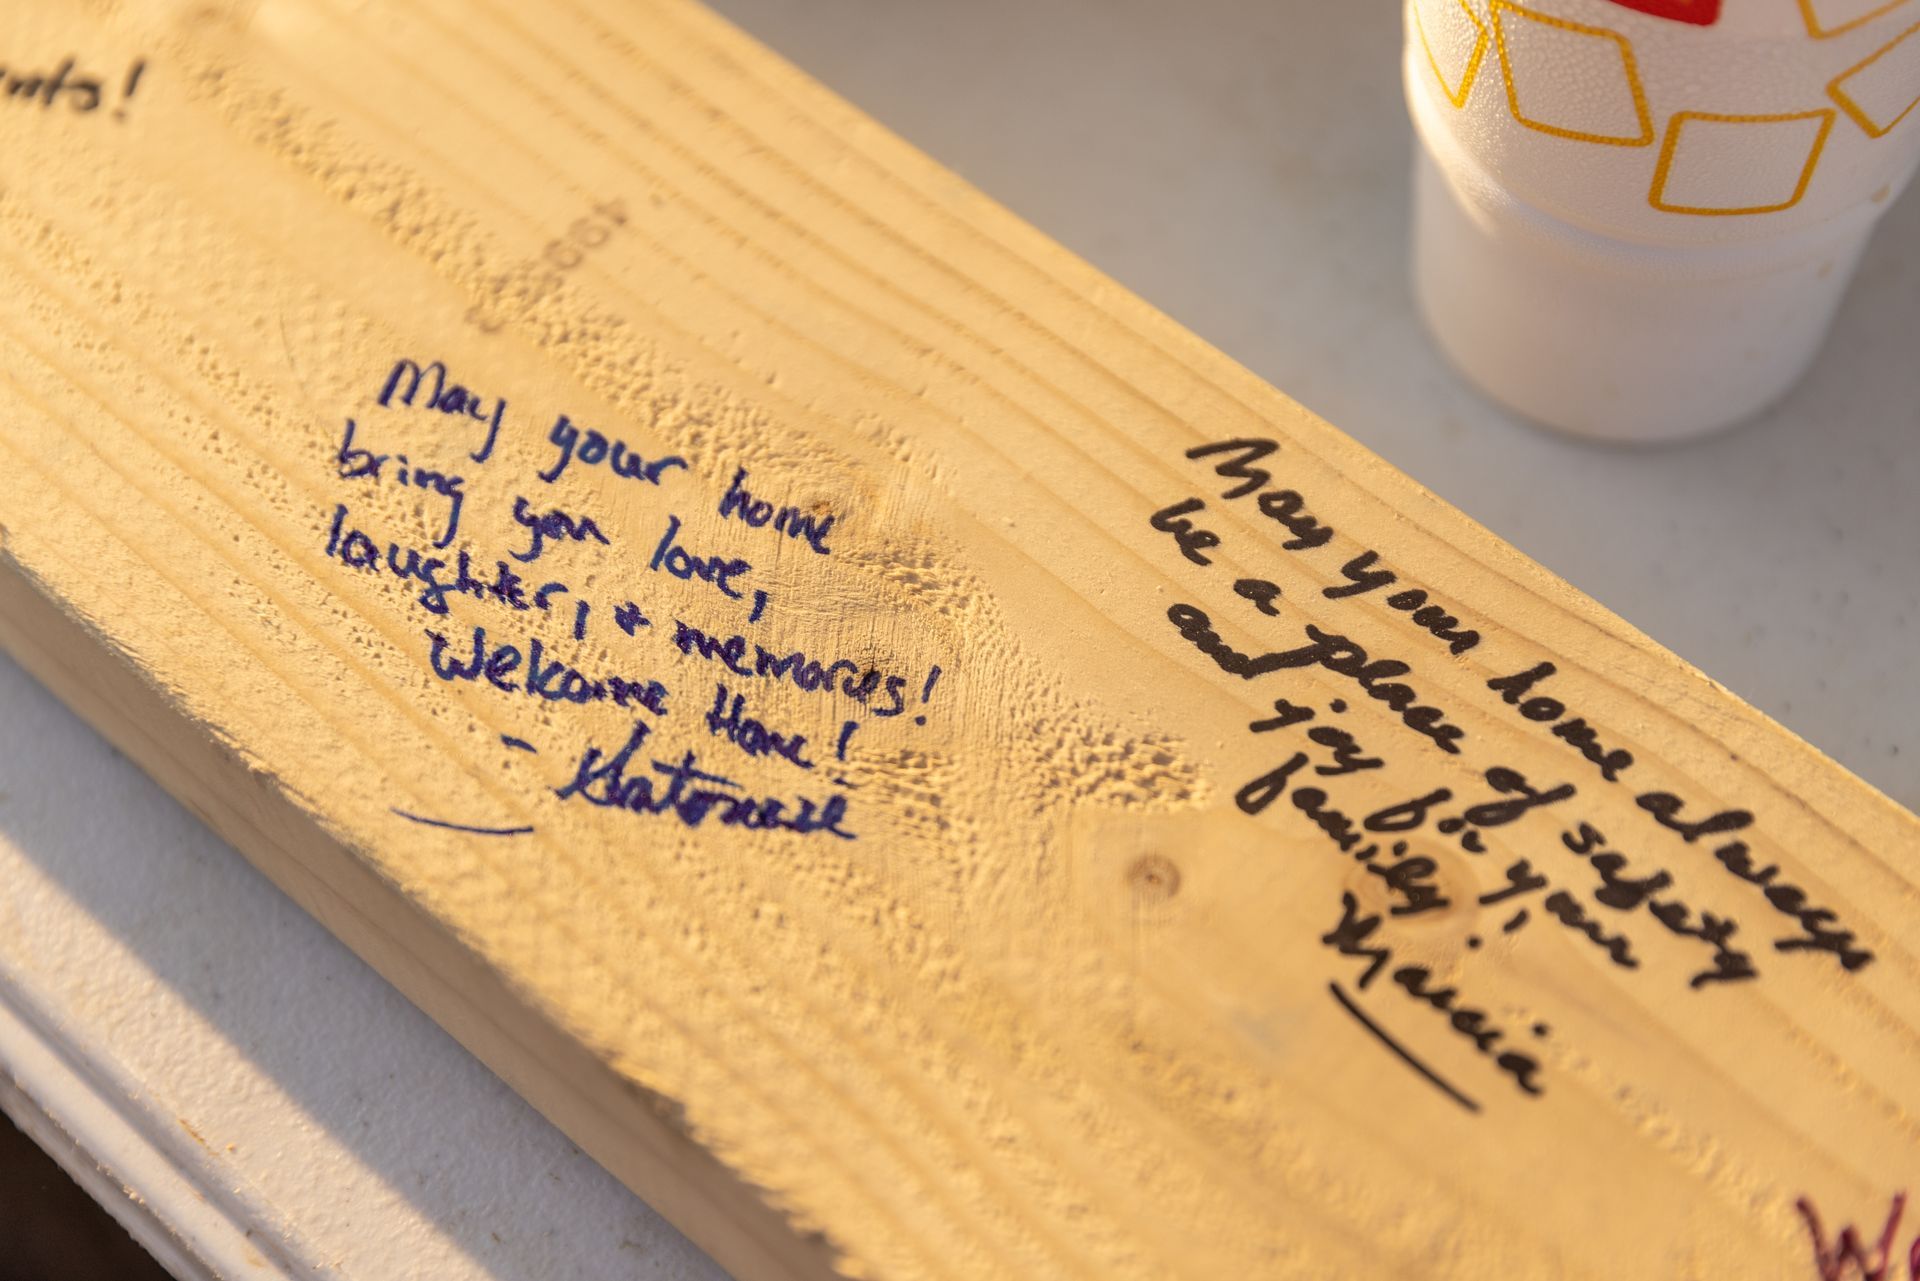 May your home
bring you love,
laughter, & memories!
Welcome Home!
May your home always
be a place of safety
and joy for your
family.
Marcia